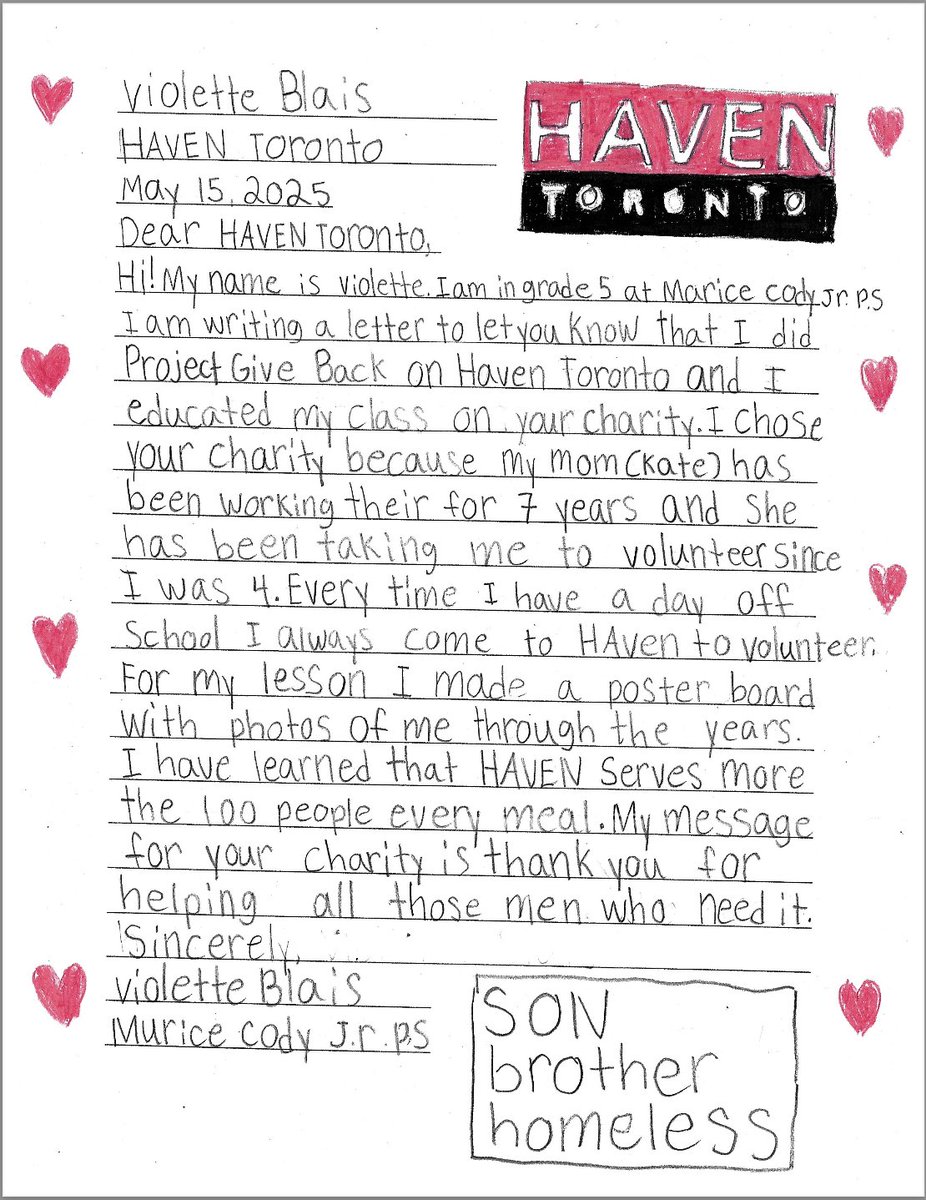 violette Blais
HAVEN Toronto
HAVEN
TORONTO
May 15, 2025
Dear HAVEN Toronto,
Hi! My name is violette. I am in grade 5 at Marice Cody Jr. P.S
I am writing a letter to let you know that I did
Project Give Back on Haven Toronto and I
educated my class on your charity. I chose
your charity because my mom (Kate) has
been working their for 7 years and she
has been taking me to volunteer since
I was 4. Every time I have a day off
school I always come to HAven to volunteer.
For my lesson I made a poster board
with photos of me through the years.
I have learned that HAVEN serves more
the 100 people every meal. My message
for your charity is thank you for
helping all those men who need it.
Sincerely,
violette Blais
Murice Cody J.r. P.S
SON
brother
homeless